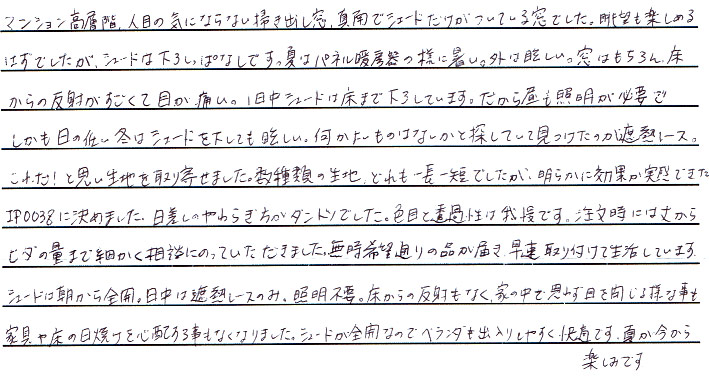 マンション高層階、人目の気にならない掃き出し窓、真南でシェードだけがついている窓でした。眺望も楽しめる
はずでしたが、シェードは下ろしっぱなしです。夏はパネル暖房器の様に暑い。外は眩しい。窓はもちろん、床
からの反射がすごくて目が痛い。1日中シェードは床まで下ろしています。だから昼も照明が必要で
しかも日の低い冬はシェードを下しても眩しい。何かよいものはないかと探していて見つけたのが遮熱レース。
これだ!と思い生地を取り寄せました。数種類の生地、どれも一長一短でしたが、明らかに効果が実感できた
IP0038に決めました。日差しのやわらぎ方がダントツでした。色目と透過性は我慢です。注文時には丈から
ヒダの量まで細かく相談にのっていただきました。無事希望通りの品が届き、早速取り付けて生活しています。
シェードは朝から全開。日中は遮熱レースのみ、照明不要。床からの反射もなく、家の中で思わず目を閉じる様な事も
家具や床の日焼けを心配する事もなくなりました。シェードが全開なのでベランダも出入りしやすく快適です。夏が今から
楽しみです